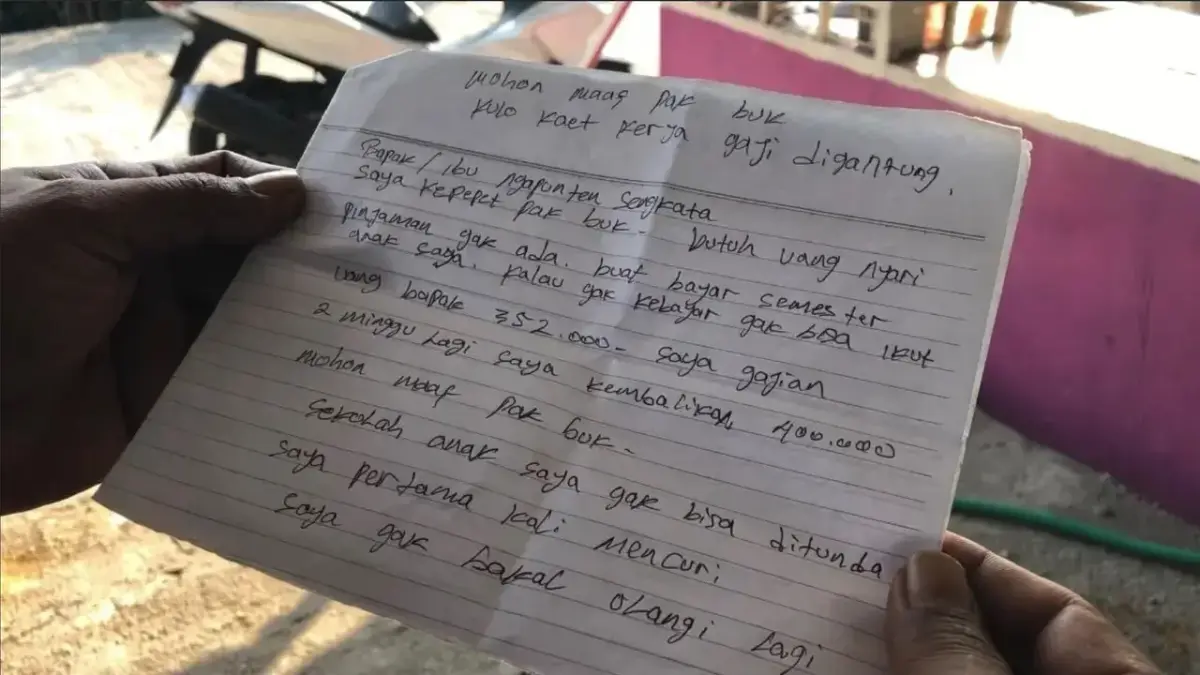 mohon maaf pak buk
kulo kaet kerja gaji digantung.
Bapak / ibu ngapunten sengkata
saya kepepet pak buk - butuh uang nyari
pinjaman gak ada. buat bayar semester
anak saya. kalau gak kebayar gak bisa ikut
uang bapak 352.000 - saya gajian
2 minggu lagi saya kembalikan 400.000
mohon maaf pak buk -
sekolah anak saya gak bisa ditunda
saya pertama kali mencuri
saya gak bakal olangi lagi